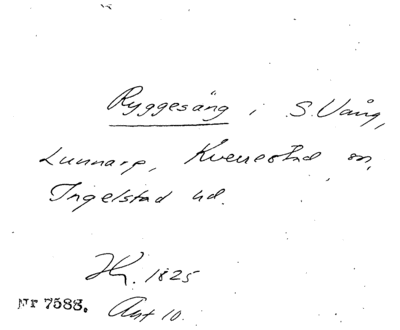 Ryggesäng i S. Vång,
Lunnarp, Kverrestad sn,
Ingelstad hd.
Hy. 1825
Nr 7588. Avt 10.